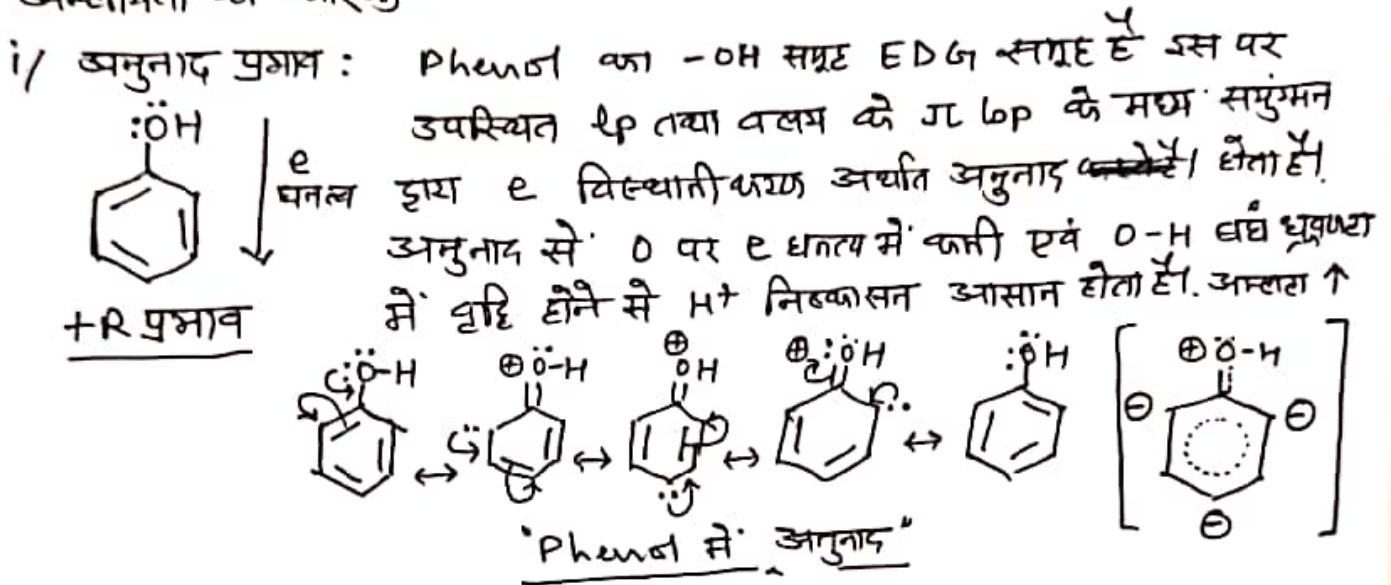 i/ अनुनाद प्रभाव : Phenol का -OH समूह EDG समूह है इस पर
:ÖH
उपस्थित lp तथा वलय के π bp के मध्य संयुग्मन
e
घनत्व
द्वारा e विस्थानीकरण अर्थात अनुनाद होता है।
अनुनाद से O पर e घनत्व में कमी एवं O-H बंध ध्रुवणता
में वृद्धि होने से H+ निष्कासन आसान होता है। अम्लता ↑
+R प्रभाव
:Ö-H ⊕Ö-H ⊕ÖH ⊕:ÖH :ÖH ⊕Ö-H
↔ ↔ ↔ ↔ ⊖ ⊖
⊖
"Phenol में अनुनाद"